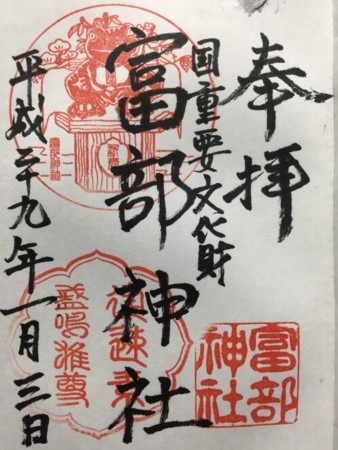 奉拝
国重要文化財
富部神社
平成二十九年一月三日
富部
神社